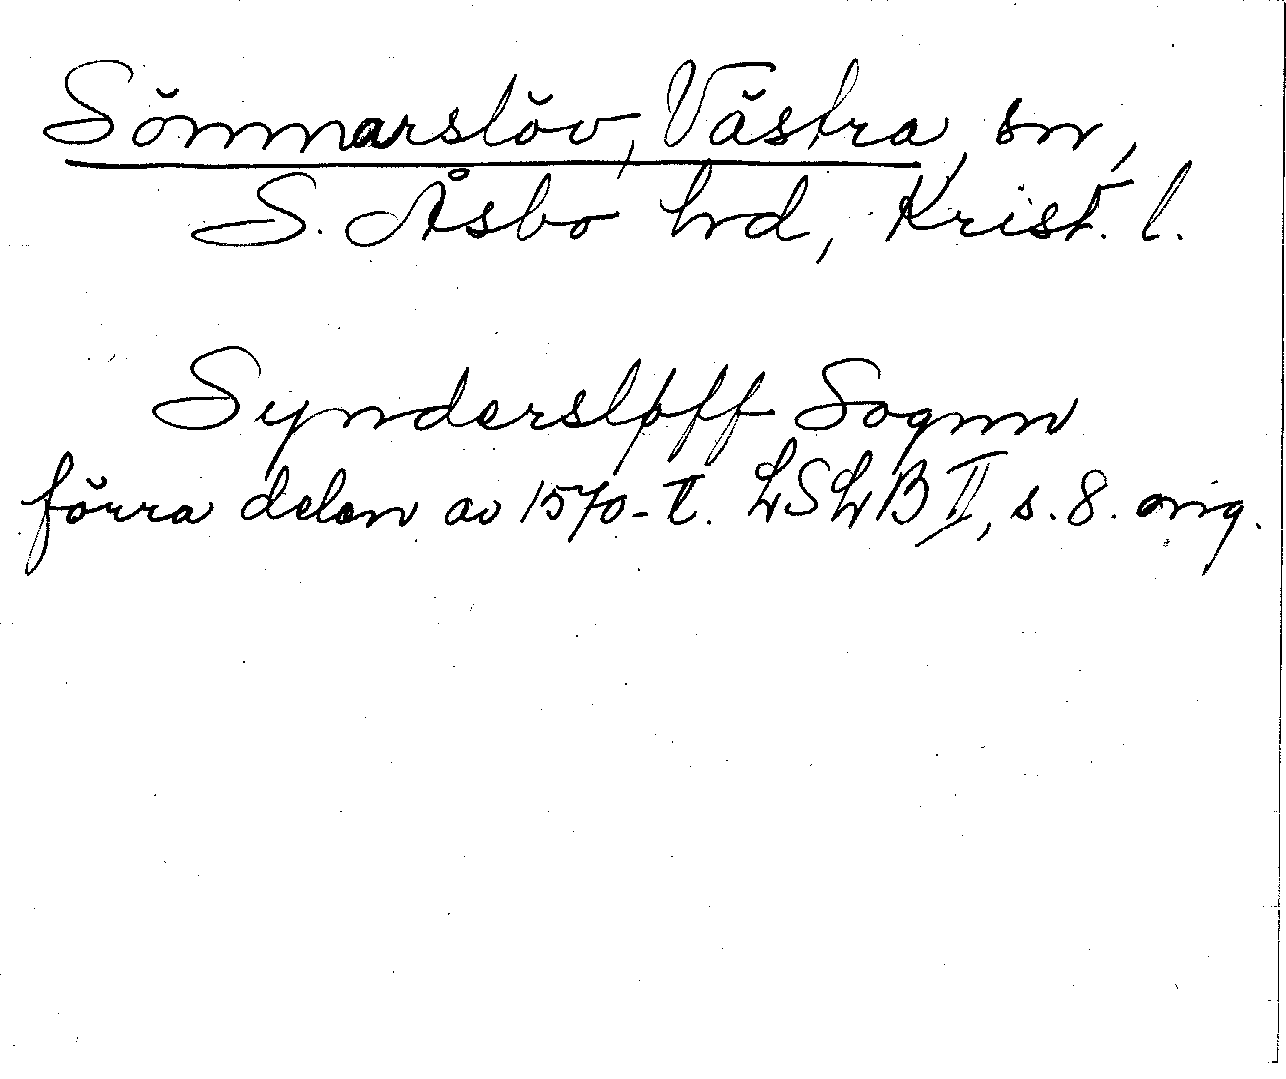 Sömmarslöv, Västra, sn,
S. Åsbo hrd, Krist. l.
Syndersløff Sognn
förra delen av 1570-t. LSLB II, s. 8. orig.